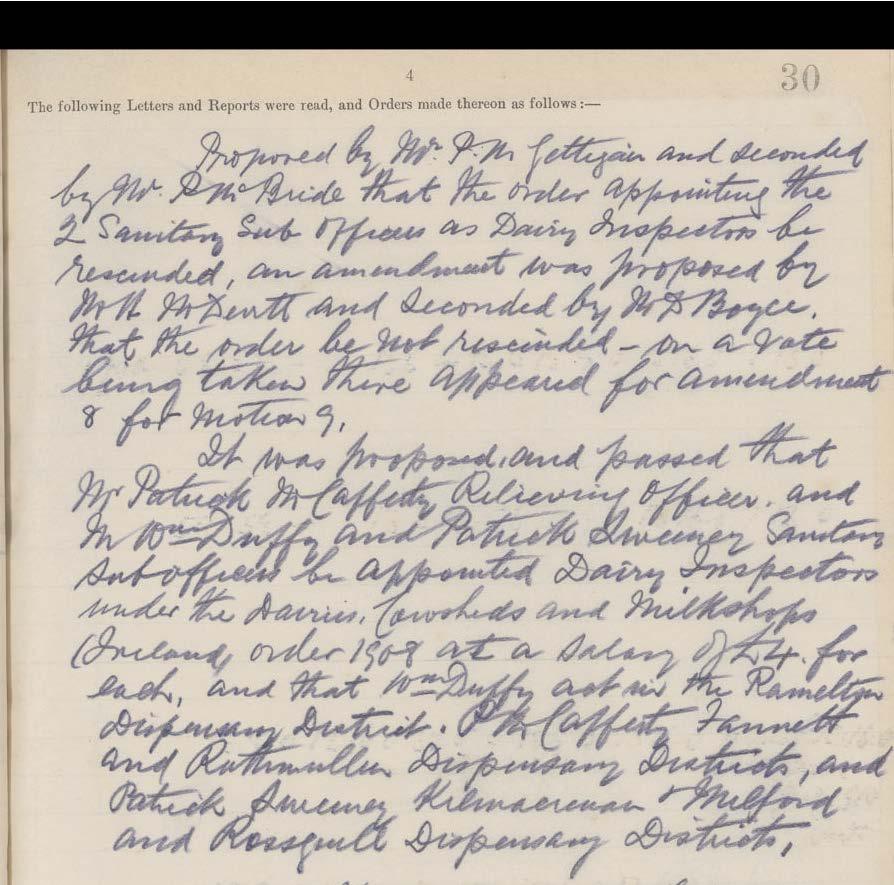 4
30
The following Letters and Reports were read, and Orders made thereon as follows:—
Proposed by Mr. P. Mc Gettigan and seconded
by Mr. P Mc Bride that the order appointing the
2 Sanitary Sub Officers as Dairy Inspectors be
rescinded, an amendment was proposed by
Mr McDevitt and seconded by Mr D Boyce.
that the order be not rescinded – on a vote
being taken there appeared for amendment
8 for motion 9,
It was proposed, and passed that
Mr Patrick McCafferty Relieving Officer, and
Mr Wm Duffy and Patrick Sweeney Sanitary
Sub officers be appointed Dairy Inspectors
under the Dairies, Cowsheds and Milkshops
(Ireland) order 1908 at a salary of £4. for
each, and that Wm Duffy act in the Ramelton
Dispensary District. P McCafferty Fannett
and Rathmullen Dispensary Districts, and
Patrick Sweeney Kilmacrenan & Milford
and Rossguill Dispensary Districts,